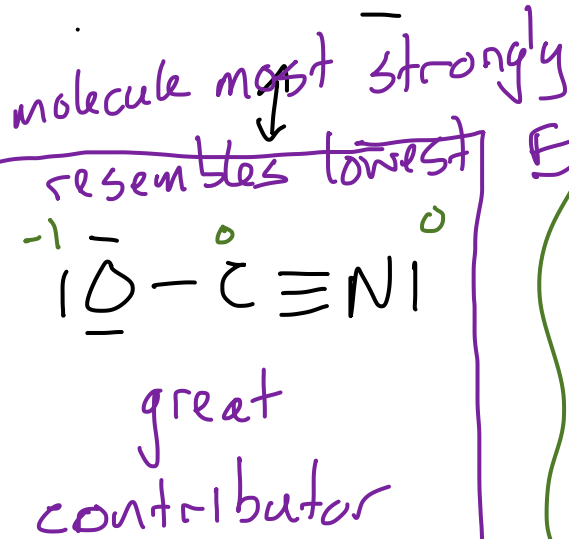 molecule most strongly
resembles lowest E
-1 0 0
|O-C≡N|
great
contributor